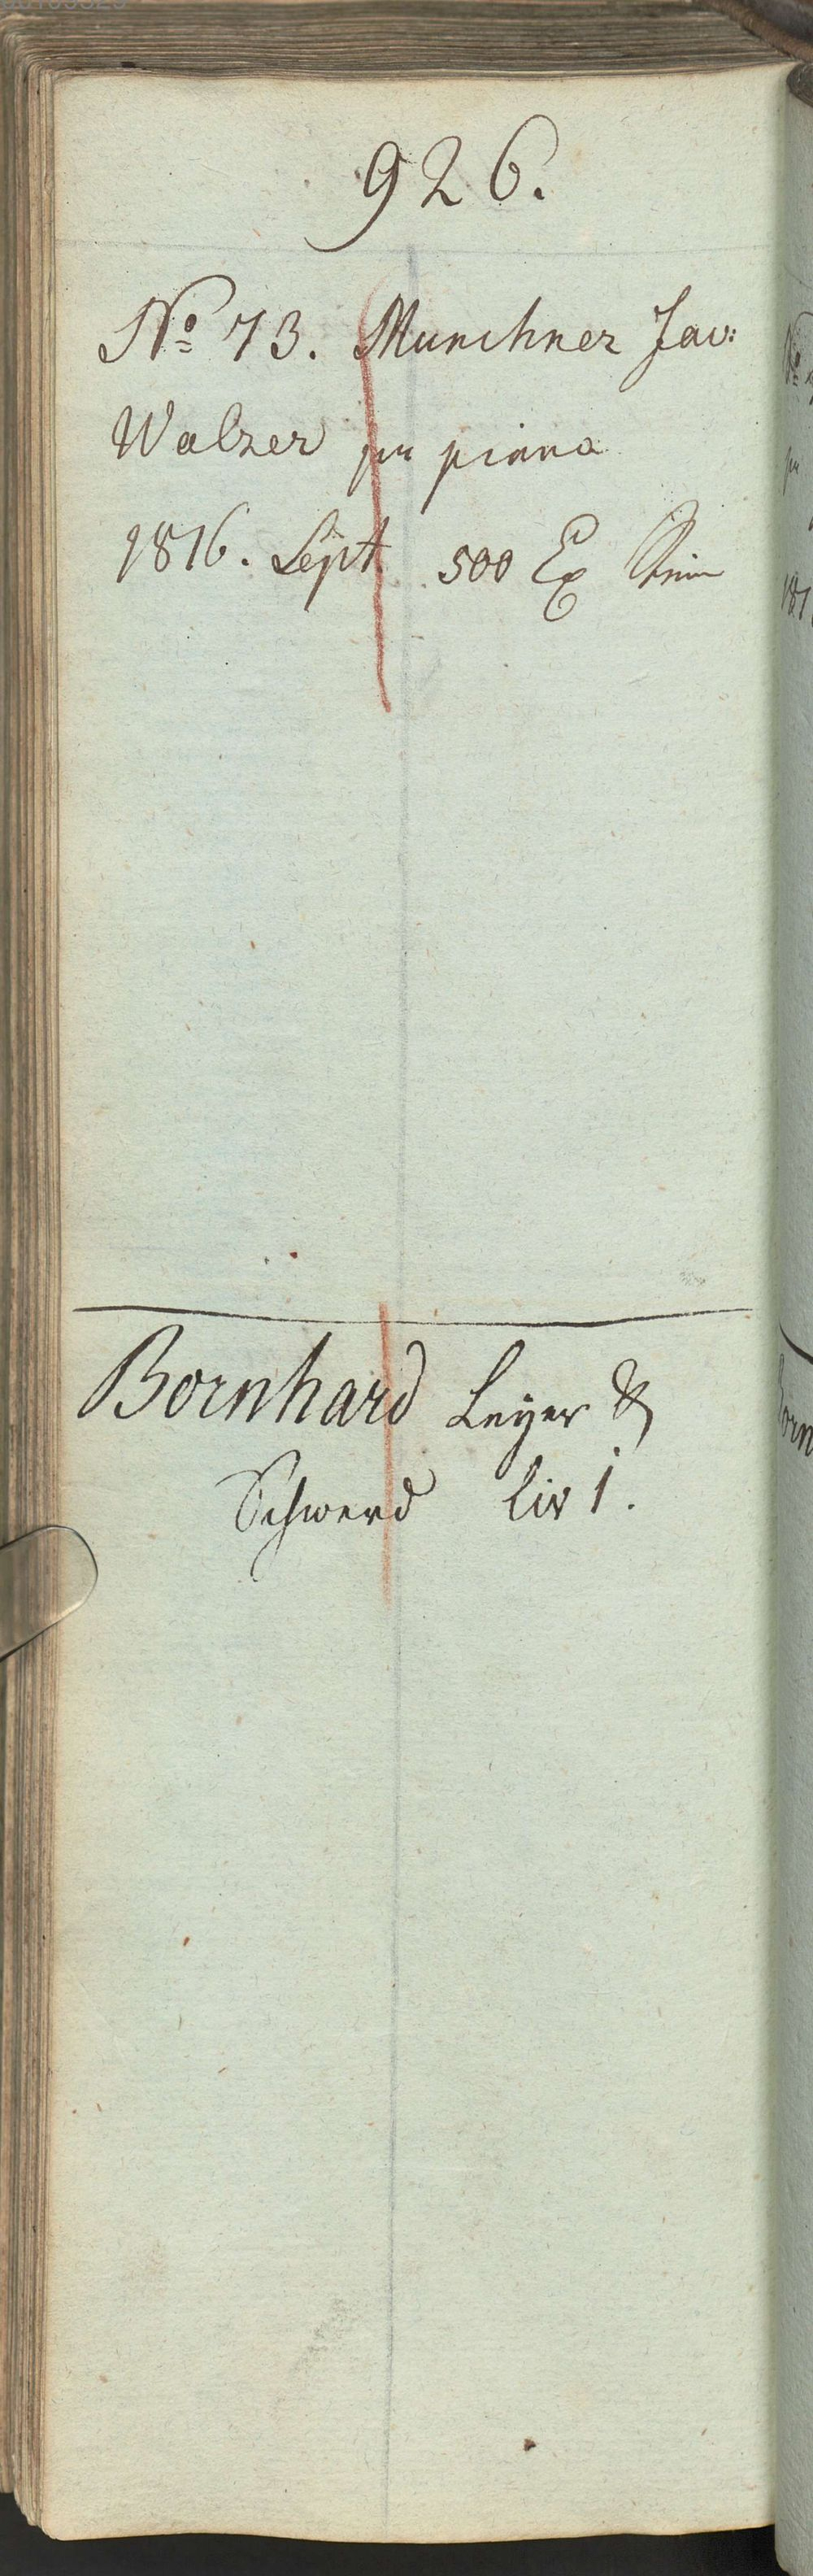 926.
No 73. Munchner Fav:
Walzer pr piano
1816. Sept 500 Ex
Bornhard Leyer &
Schwerd Liv 1.